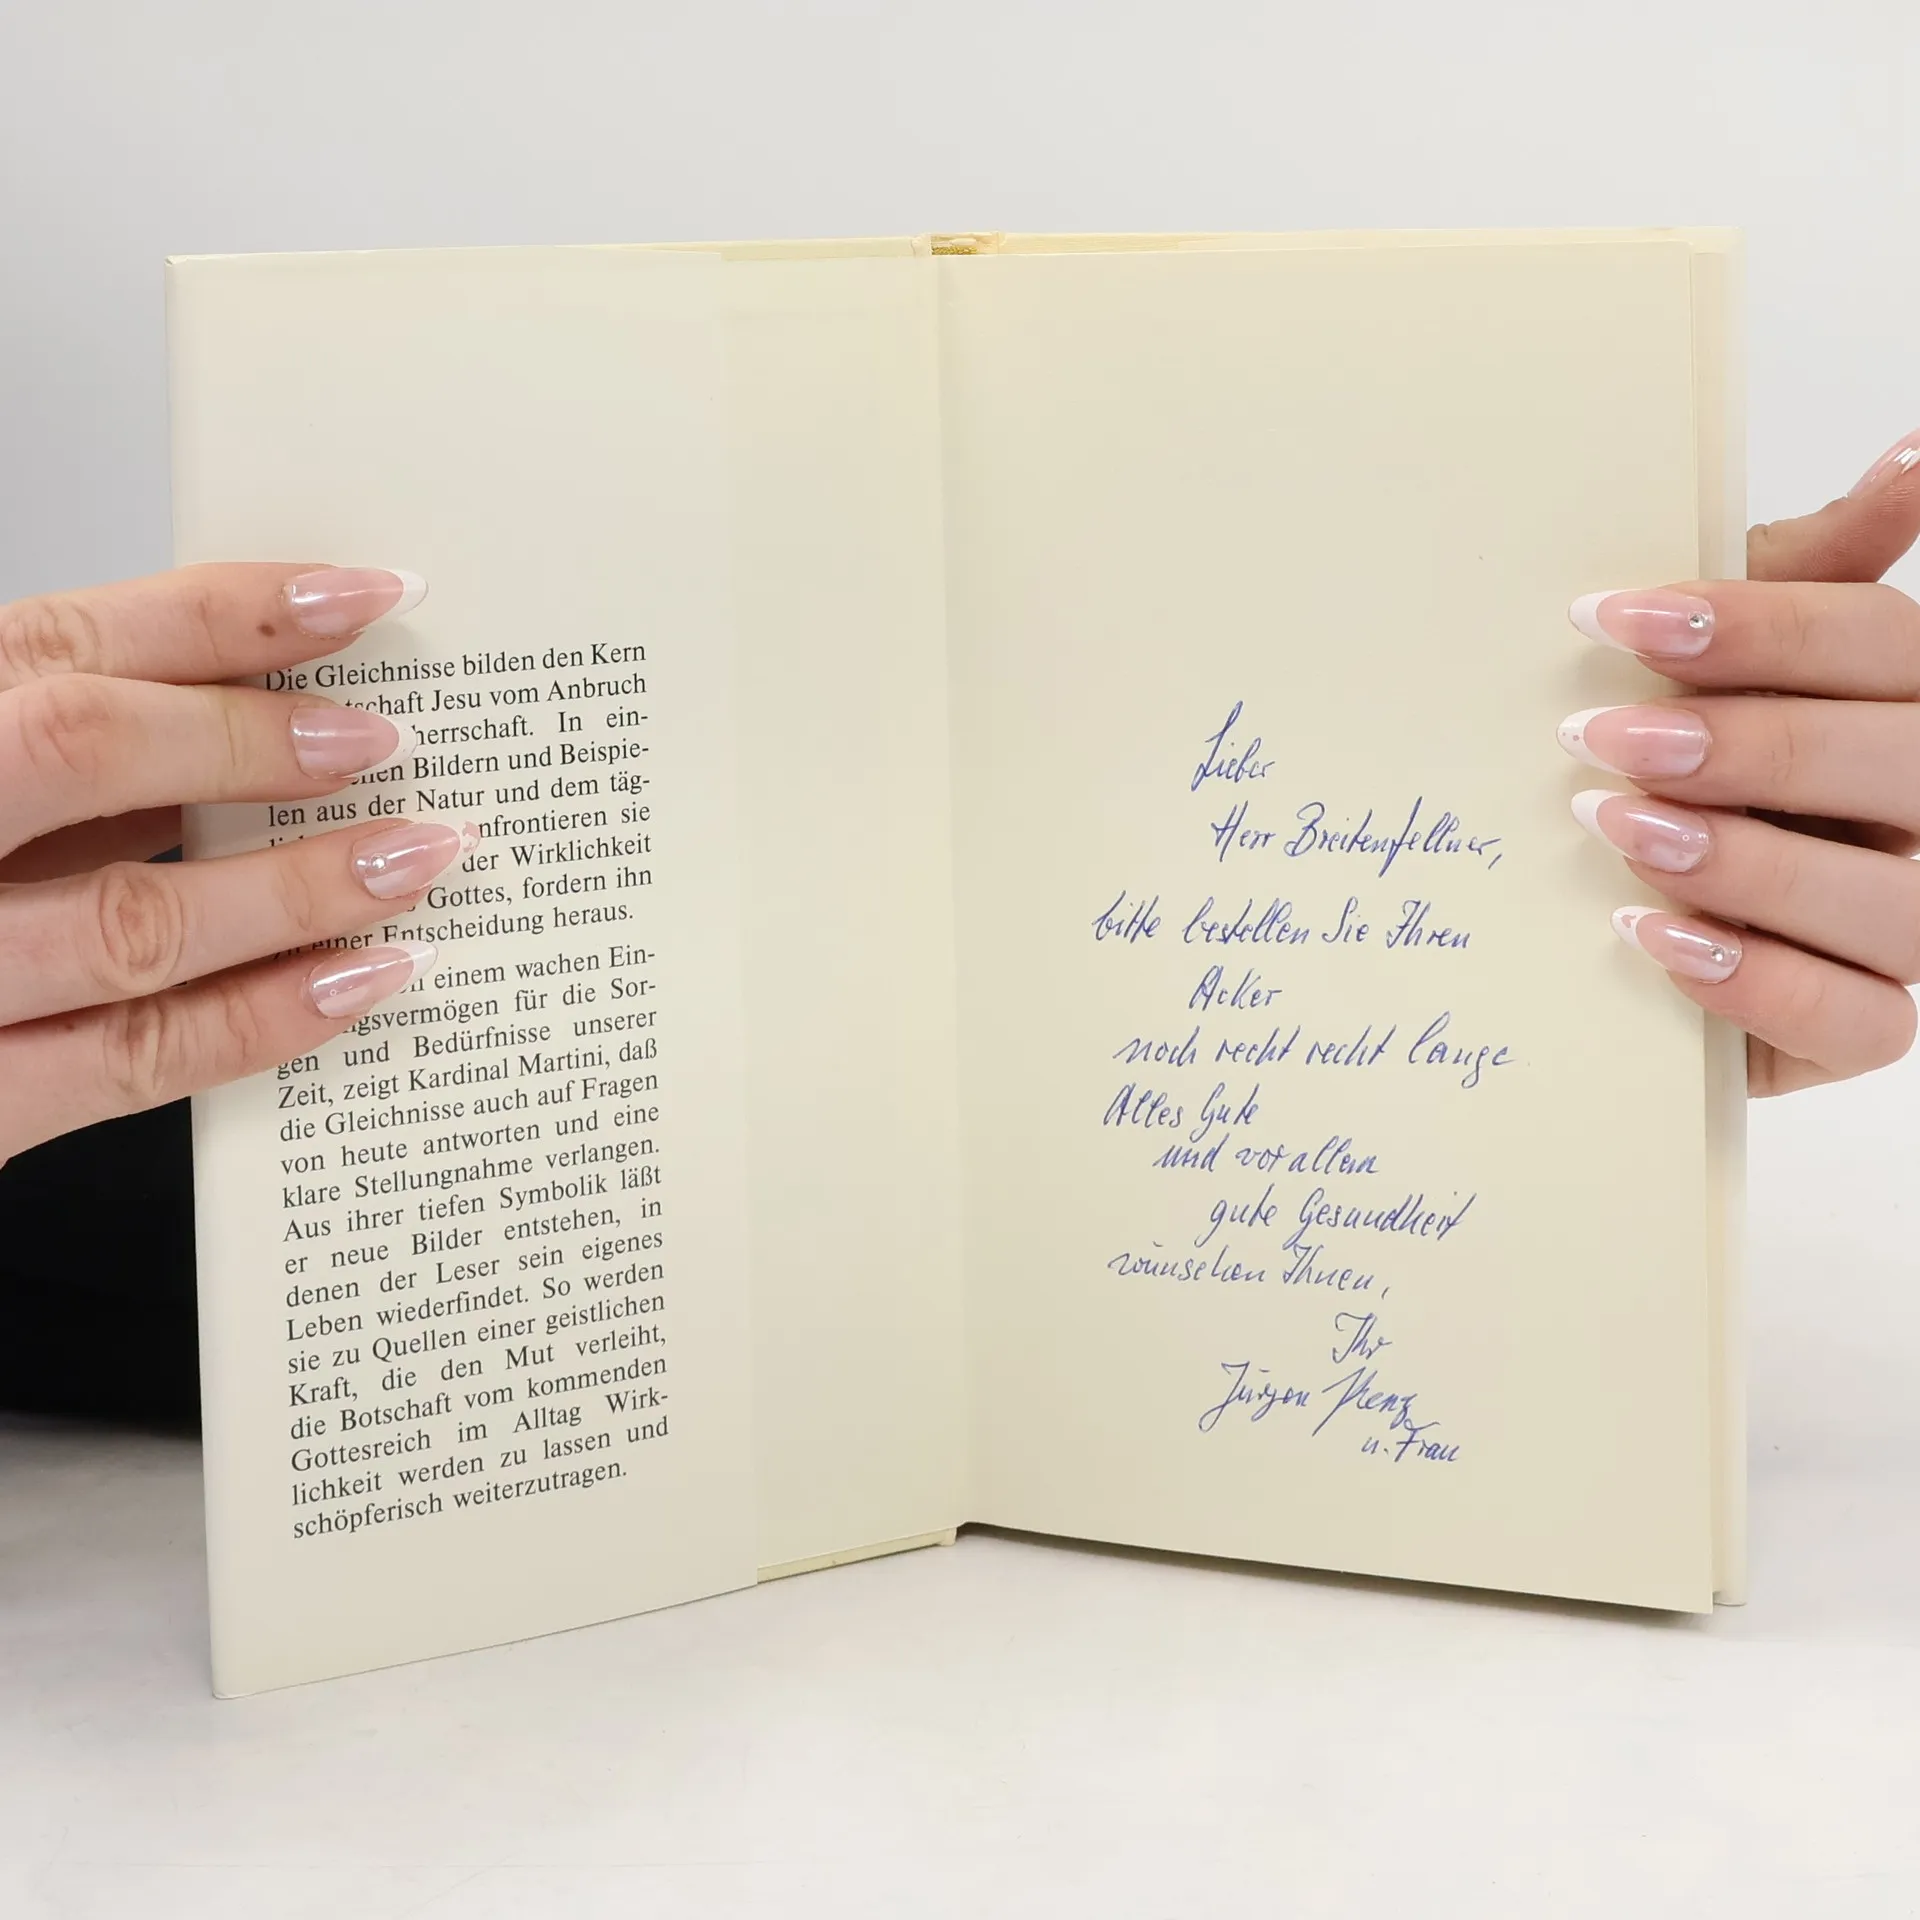 Die Gleichnisse bilden den Kern
tschaft Jesu vom Anbruch
herrschaft. In ein-
chen Bildern und Beispie-
len aus der Natur und dem täg-
nfrontieren sie
der Wirklichkeit
Gottes, fordern ihn
zu einer Entscheidung heraus.
einem wachen Ein-
ngsvermögen für die Sor-
gen und Bedürfnisse unserer
Zeit, zeigt Kardinal Martini, daß
die Gleichnisse auch auf Fragen
von heute antworten und eine
klare Stellungnahme verlangen.
Aus ihrer tiefen Symbolik läßt
er neue Bilder entstehen, in
denen der Leser sein eigenes
Leben wiederfindet. So werden
sie zu Quellen einer geistlichen
Kraft, die den Mut verleiht,
die Botschaft vom kommenden
Gottesreich im Alltag Wirk-
lichkeit werden zu lassen und
schöpferisch weiterzutragen.
Lieber
Herr Breitenfellner,
bitte bestellen Sie Ihren
Acker
noch recht recht lange
Alles Gute
und vor allem
gute Gesundheit
wünschen Ihnen,
Ihr
Jürgen
u. Frau